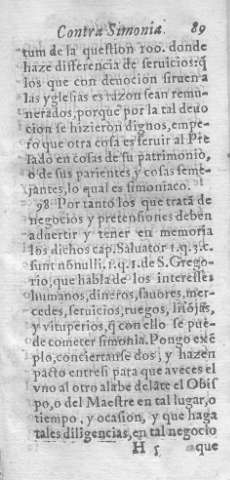 Contra Simonia. 89
tum de la question 100. donde
haze differencia de seruicios:q̃
los que con deuocion siruen a
las yglesias es razon sean remu-
nerados, porque por la tal deuo
cion se hizieron dignos, empe-
ro que otra cosa es seruir al Pre
lado en cosas de su patrimonio,
o de sus parientes y cosas seme-
jantes, lo qual es simoniaco.
98. Por tanto los que tratã de
negocios y pretensiones deben
aduertir y tener en memoria
los dichos cap. Saluator 1.q.3.c.
sunt nõnulli. 1.q.1.de S. Grego-
rio, que habla de los interesses
humanos, dineros, fauores, mer-
cedes, seruicios, ruegos, lisõjas,
y vituperios, q̃ con ello se pue-
de cometer simonia. Pongo exẽ
plo, conciertanse dos, y hazen
pacto entresi para que aveces el
vno al otro alabe delãte el Obis
po, o del Maestre en tal lugar, o
tiempo, y ocasion, y que haga
tales diligencias, en tal negocio
H 5 que